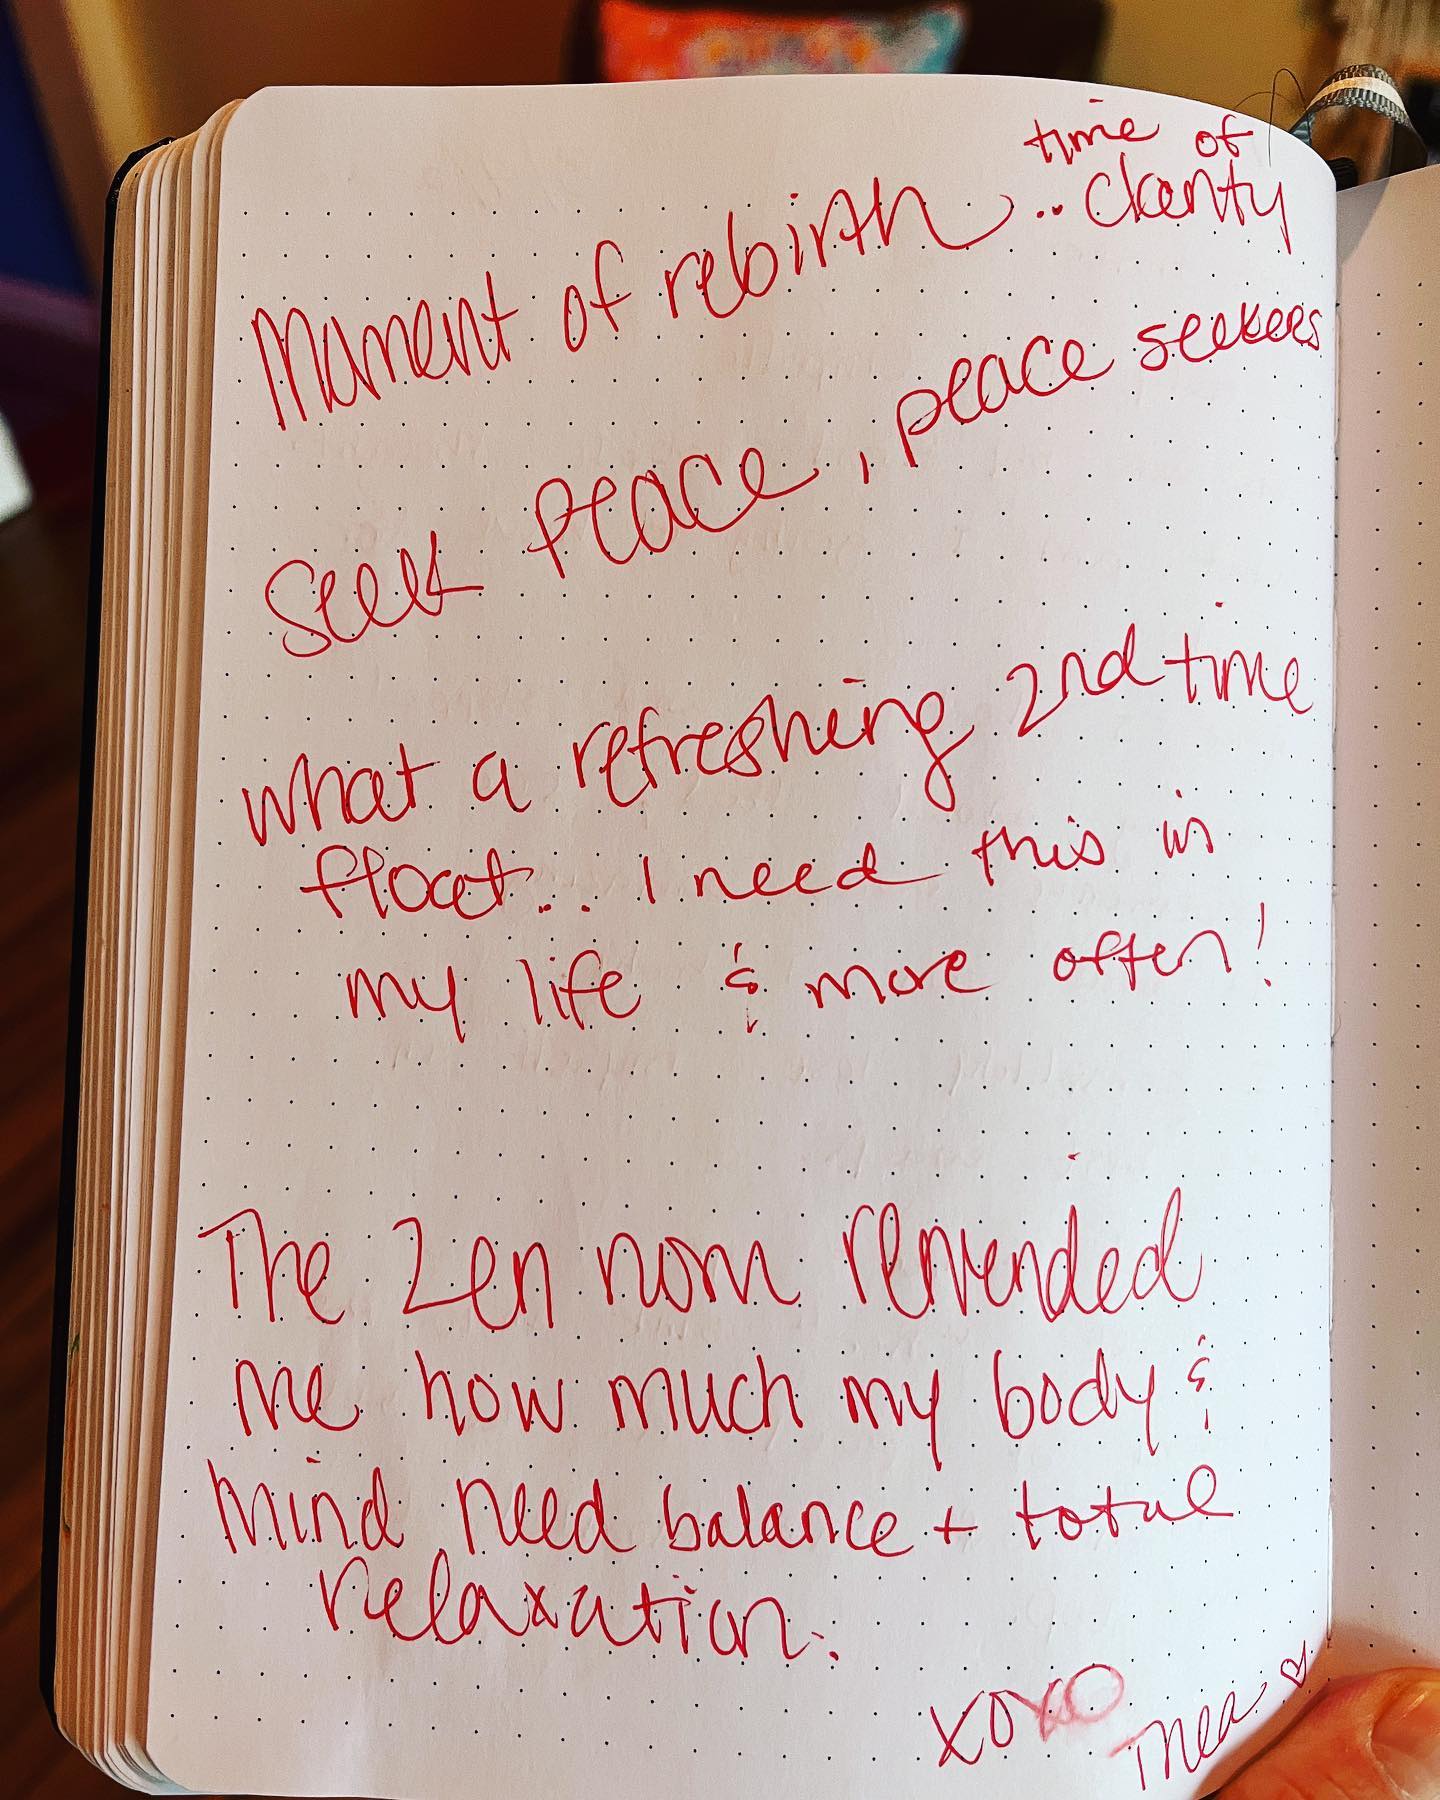 Moment of rebirth .. time of clarity
Seek Peace, peace seekers
what a refreshing 2nd time
float... I need this in
my life & more often!
The Zen room reminded
me how much my body &
mind need balance + total
relaxation.
XOXO
Thea ♡